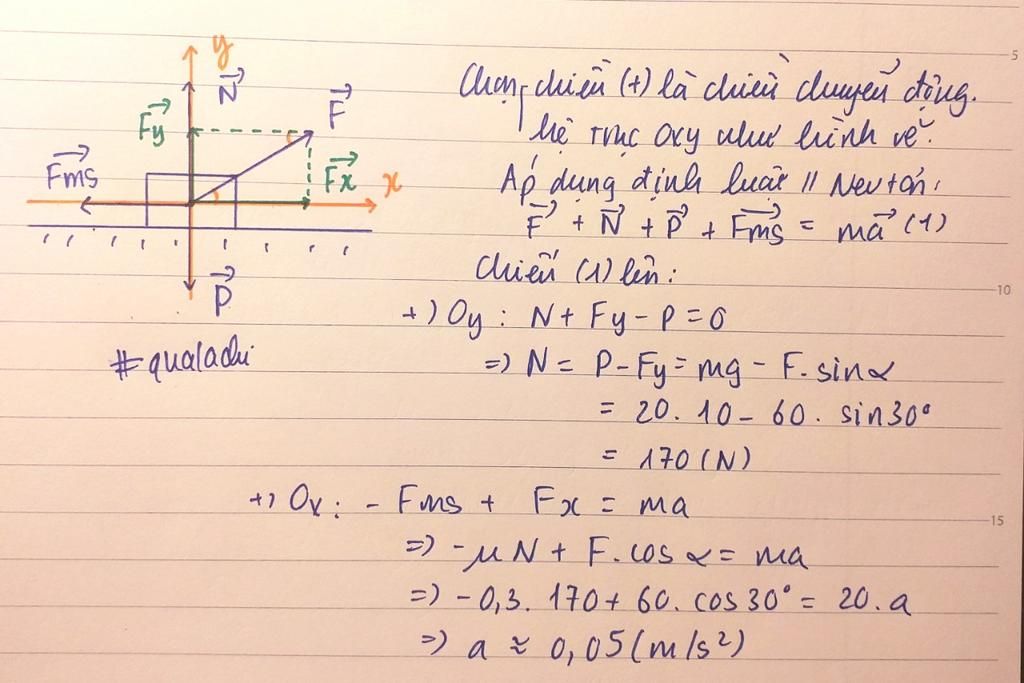 y
N⃗
F⃗
Fy⃗
Fms⃗
Fx⃗
x
P⃗
#qualachi
Chọn chiều (+) là chiều chuyển động.
hệ trục Oxy như hình vẽ.
Áp dụng định luật II Newton:
F⃗ + N⃗ + P⃗ + Fms⃗ = ma⃗ (1)
Chiếu (1) lên:
+) Oy : N + Fy - P = 0
=> N = P - Fy = mg - F. sinα
= 20. 10 - 60. sin30°
= 170 (N)
+) Ox: - Fms + Fx = ma
=> -μN + F. cos α = ma
=> -0,3. 170 + 60. cos30° = 20. a
=> a ≈ 0,05 (m/s²)
5
10
15